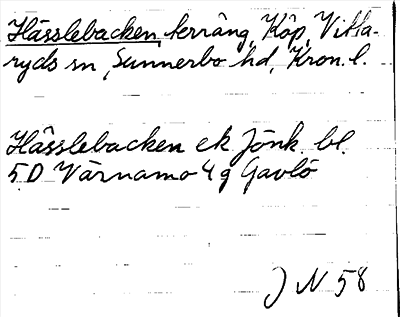 Hässlebacken, terräng, Köp, Vitta-
ryds sn, Sunnerbo hd, Kron. l.
Hässlebacken ek. Jönk. bl.
5D Värnamo 4g Gavlö
J N 58